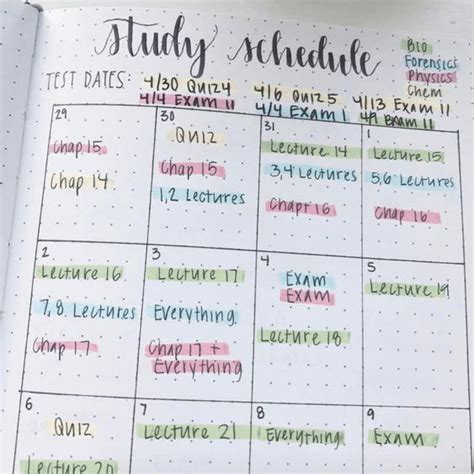 study schedule
BIO
Forensics
Physics
Chem
TEST DATES: 4/30 QUIZ 4 4/6 QUIZ 5 4/13 EXAM II
4/4 EXAM II 4/4 EXAM I 4/9 EXAM II
29 30 31 1
Chap 15 QUIZ Lecture 14 Lecture 15
Chap 14 Chap 15 3,4 Lectures 5,6 Lectures
1,2 Lectures Chapt 16 Chap 16
2 3 4 5
Lecture 16 Lecture 17 Exam Lecture 19
Exam
7,8 Lectures Everything Lecture 18
Chap 17 Chap 17 +
Everything
6 7 8 9
QUIZ Lecture 21 Everything EXAM
Lecture 20